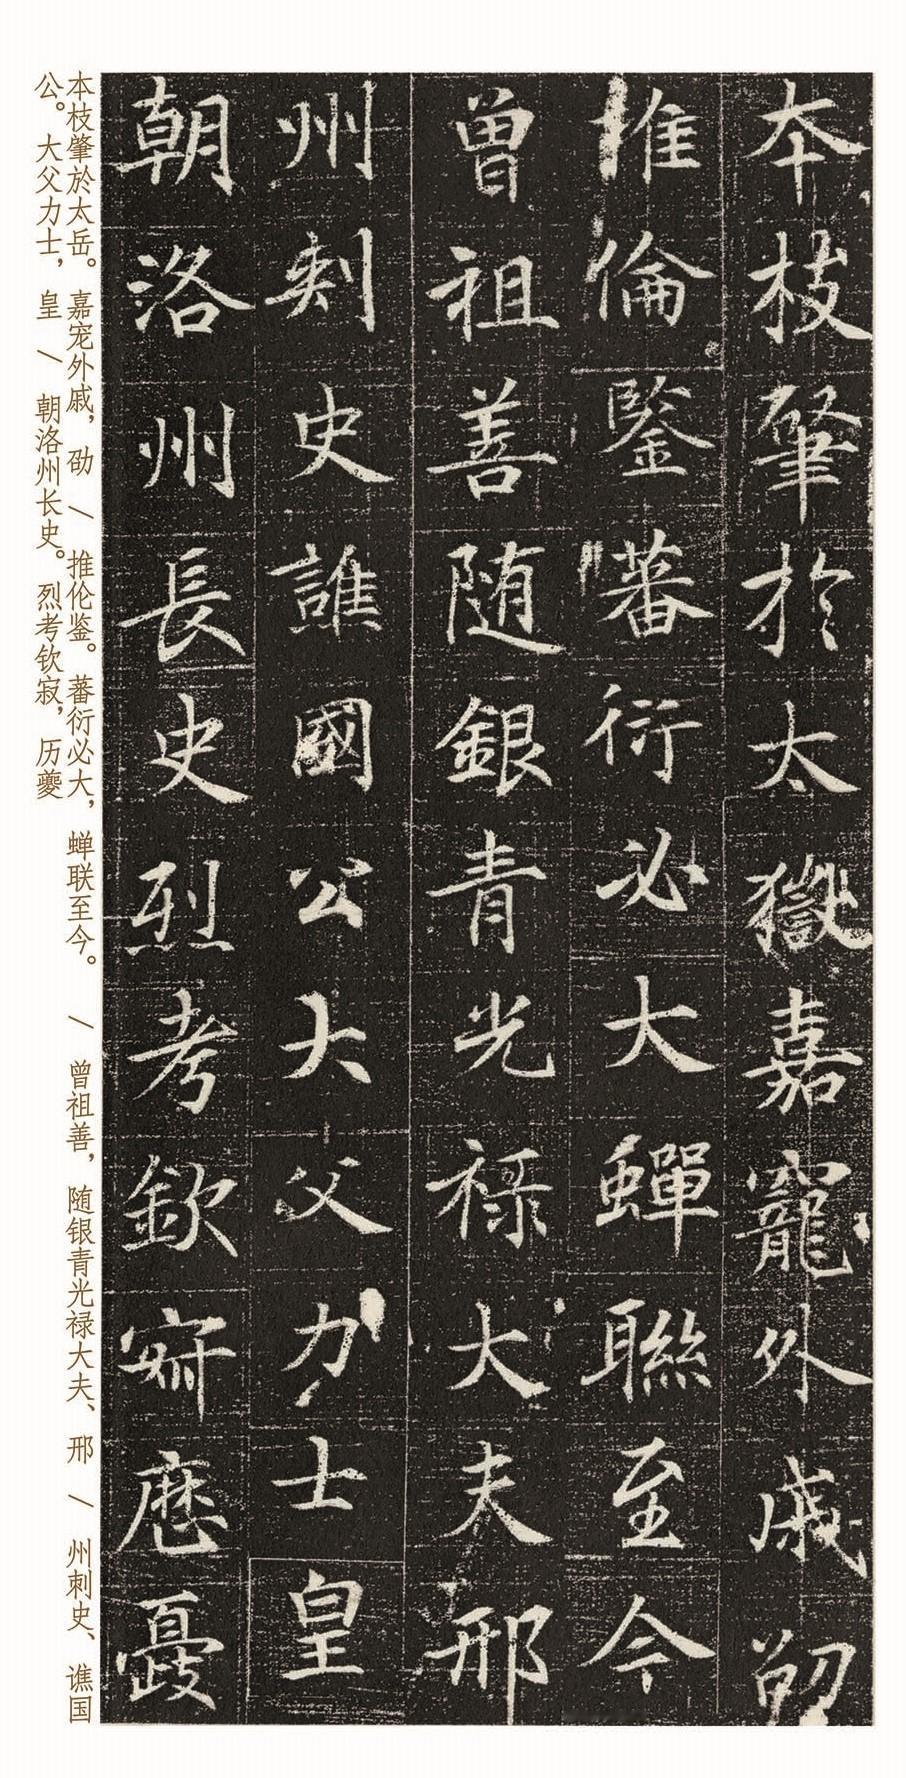 本枝肇於太嶽嘉寵外戚劭
推倫鑒蕃衍必大蟬聯至今
曾祖善随銀青光祿大夫邢
州刾史譙國公大父力士皇
朝洛州長史烈考欽寂歷夔
本枝肇於太岳。嘉宠外戚，劭 / 推伦鉴。蕃衍必大，蝉联至今。 / 曾祖善，随银青光禄大夫、邢 / 州刺史、谯国
公。大父力士，皇 / 朝洛州长史。烈考钦寂，历夔